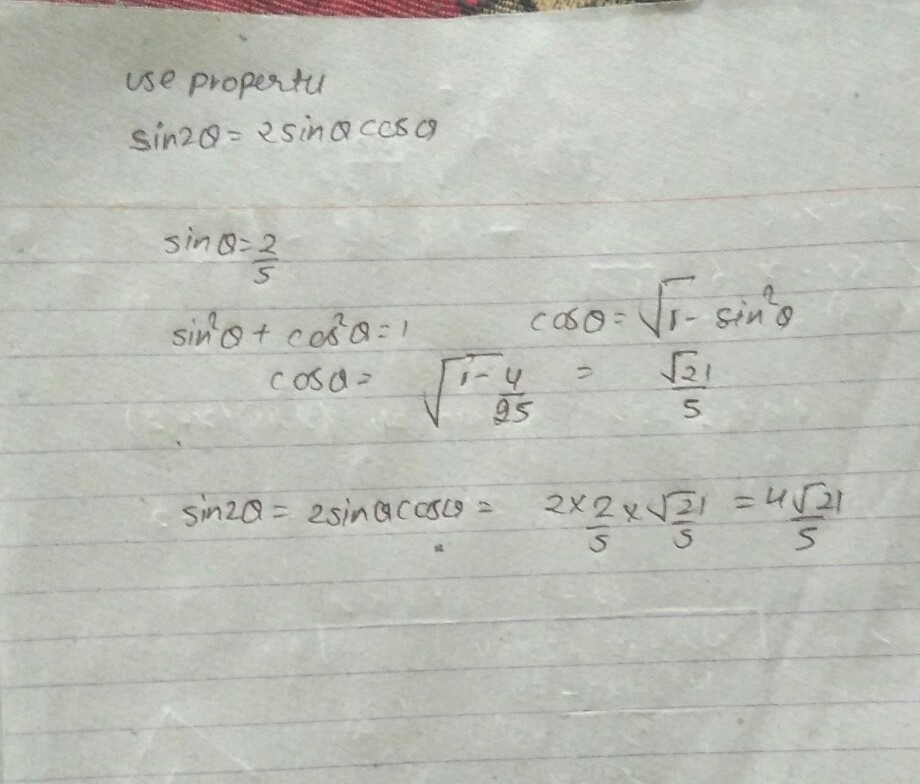 use property
sin2θ = 2sinθcosθ
sinθ = 2/5
sin²θ + cos²θ = 1 cosθ = √1 - sin²θ
cosθ = √1 - 4/25 = √21/5
sin2θ = 2sinθcosθ = 2 × 2/5 × √21/5 = 4√21/5